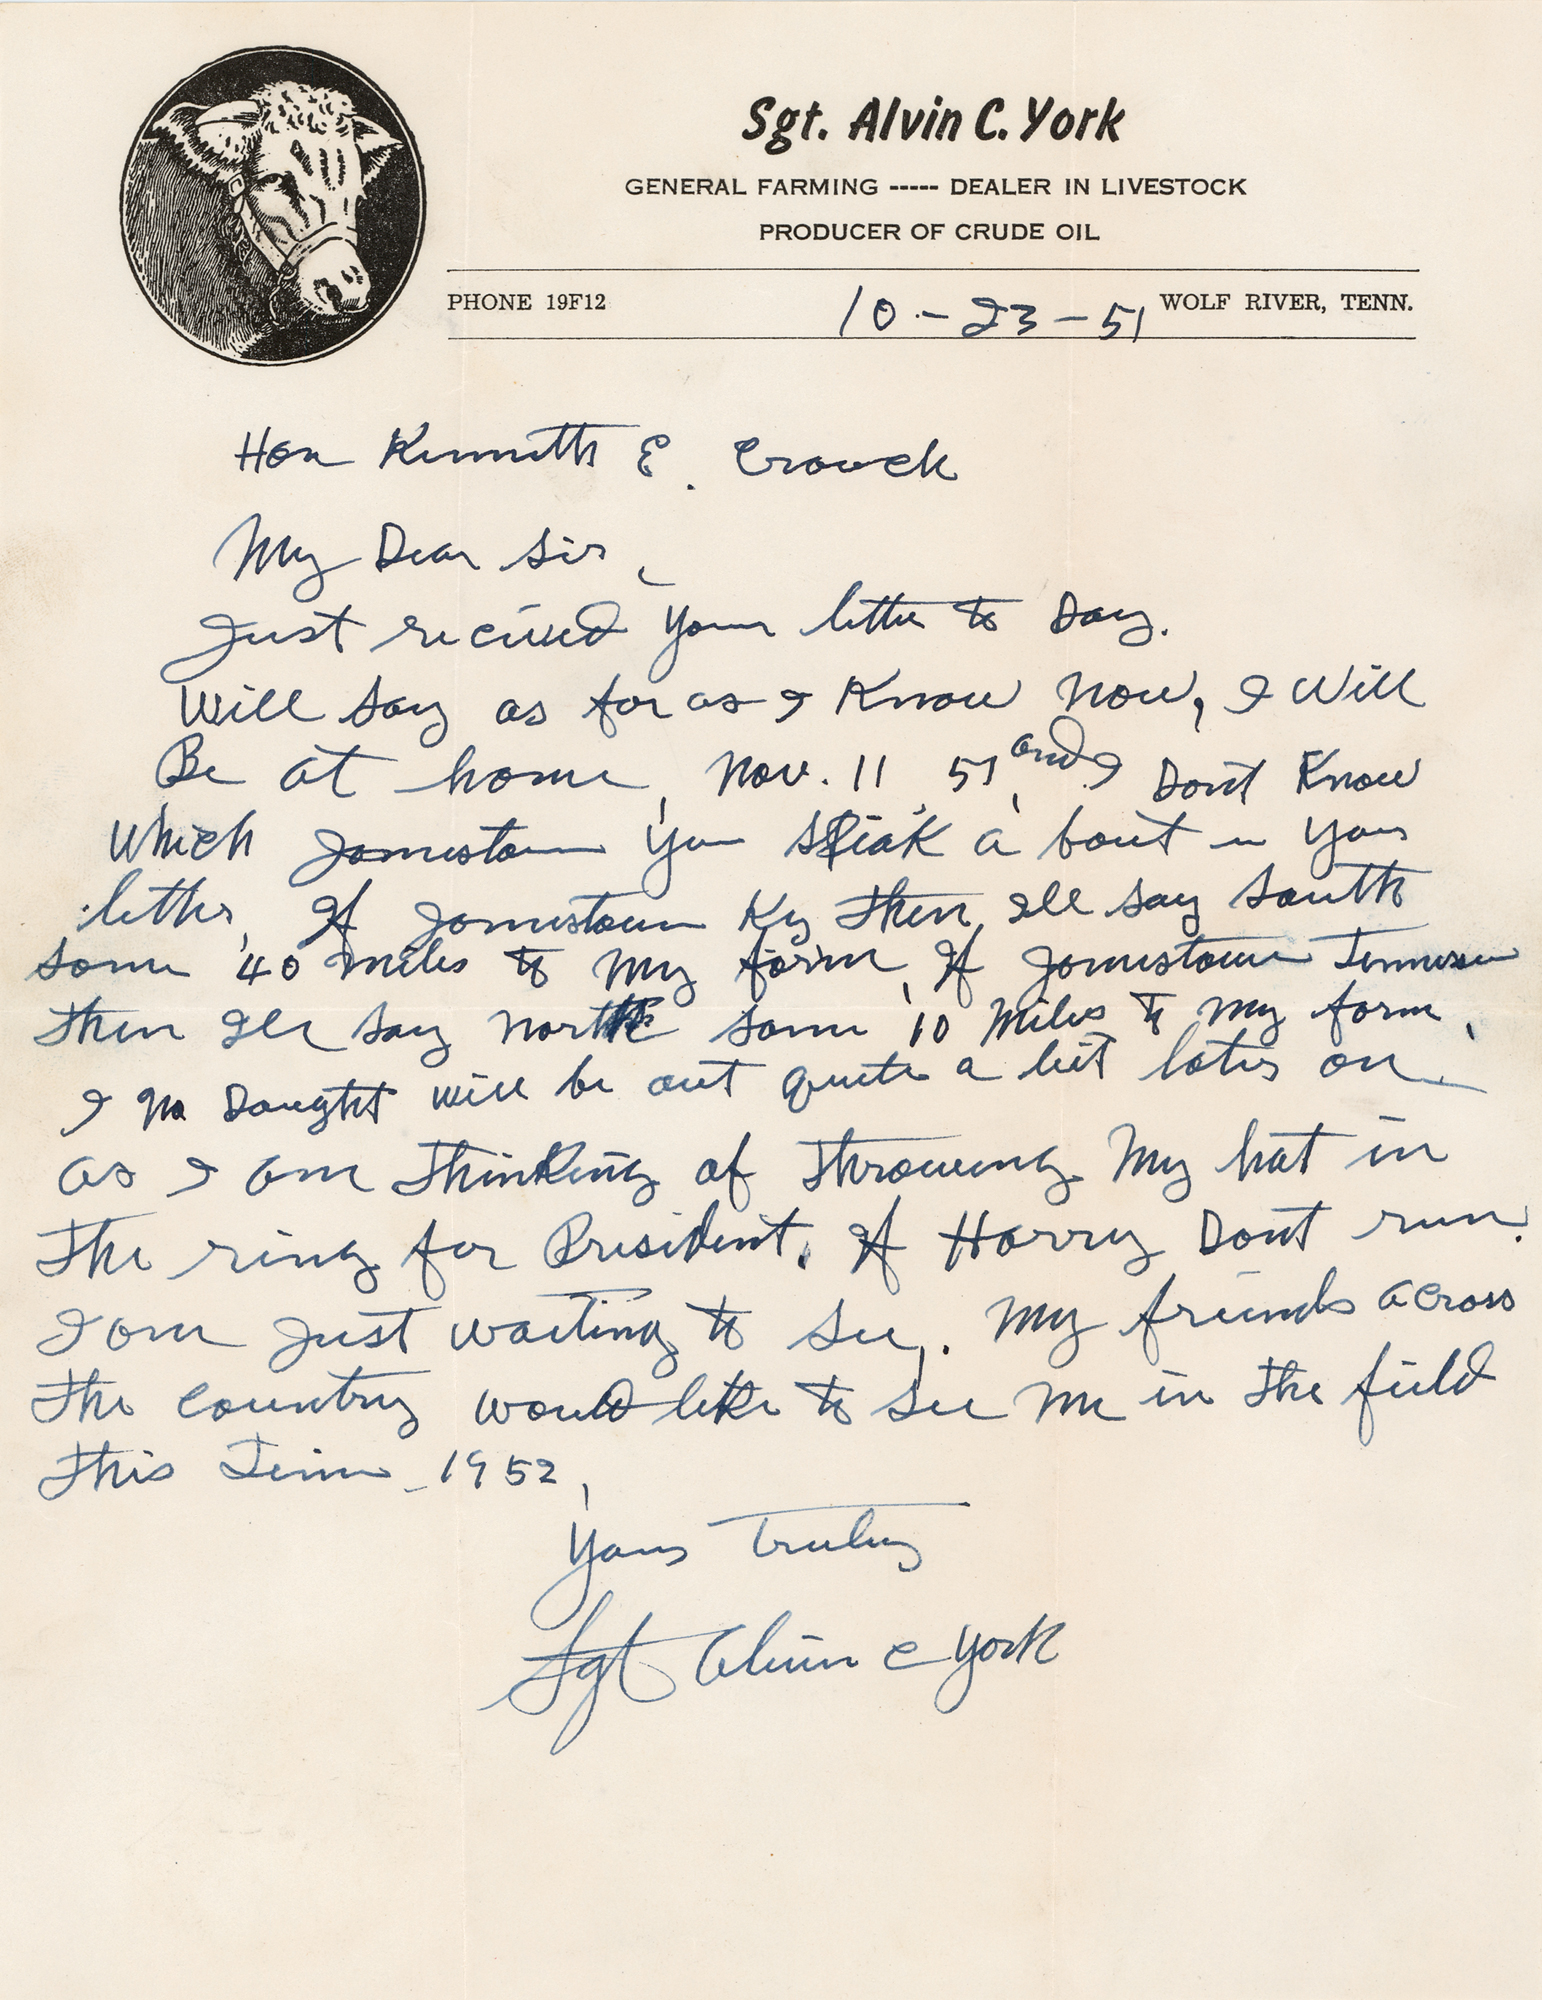 Sgt. Alvin C. York
GENERAL FARMING ----- DEALER IN LIVESTOCK
PRODUCER OF CRUDE OIL
PHONE 19F12 10-23-51 WOLF RIVER, TENN.
Hon Kenneth E. Crouch
My Dear Sir,
Just recived your letter to Day.
Will say as far as I Know Now, I Will
Be at home, Nov. 11 51, and I Dont Know
Which Jamestown you speak a bout in your
letter, If Jamestown Ky then Ill say South
some 40 miles to My farm, If Jamestown Tennessee
then Ill say North some 10 Miles to My farm,
I no Dought will be out quite a bit later on
as I am thinking of throwing My hat in
the ring for President, If Harry Dont run.
I am Just waiting to see. My friends across
the country would like to see Me in the field
this Time - 1952,
Yours Truley
Sgt Alvin C York